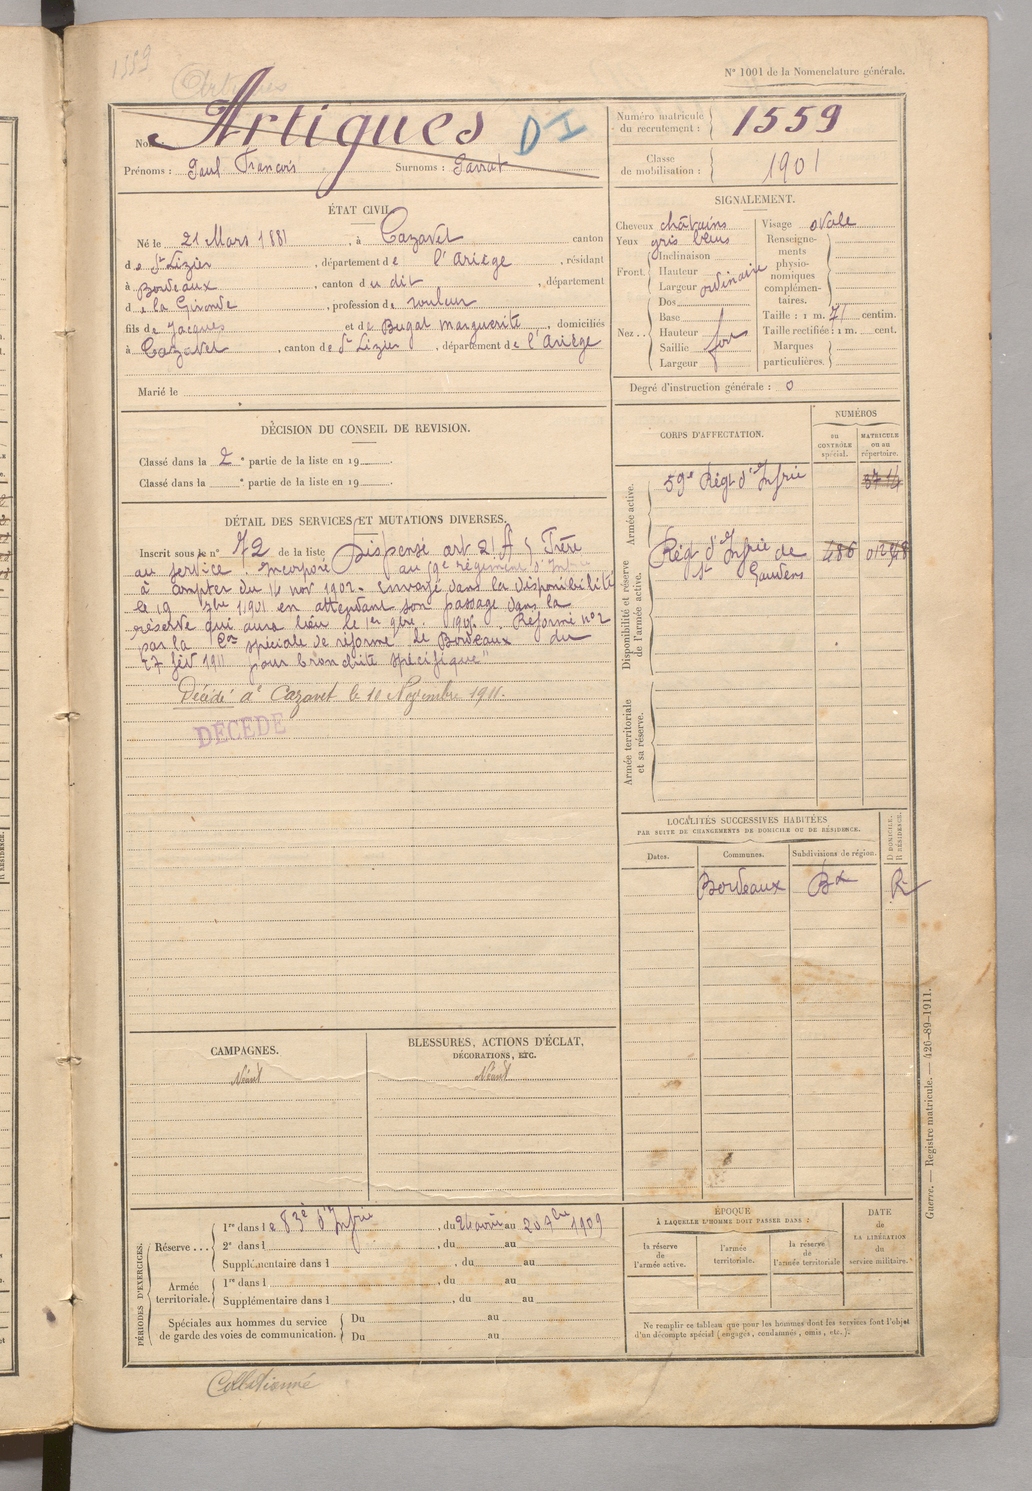 1559
Artigues
N° 1001 de la Nomenclature générale.
Nom: Artigues
D I
Prénoms : Paul François Surnoms : Parrat
Numéro matricule du recrutement : 1559
Classe de mobilisation : 1901
ÉTAT CIVIL.
Né le 21 Mars 1881, à Cazavet canton
de St Lizier, département de l'Ariège, résidant
à Bordeaux, canton du dit, département
de la Gironde, profession de rouleur
fils de Jacques et de Bugat marguerite, domiciliés
à Cazavet, canton de St Lizier, département de l'Ariège
Marié le
SIGNALEMENT.
Cheveux châtains
Yeux gris bleus
Front. Inclinaison
Hauteur
Largeur ordinaire
Nez.. Dos
Base
Hauteur
Saillie fort
Largeur
Visage ovale
Renseignements physionomiques complémentaires.
Taille : 1 m. 71 centim.
Taille rectifiée : 1 m. cent.
Marques particulières.
Degré d'instruction générale : 0
DÉCISION DU CONSEIL DE REVISION.
Classé dans la 2e partie de la liste en 19
Classé dans la e partie de la liste en 19
DÉTAIL DES SERVICES ET MUTATIONS DIVERSES.
Inscrit sous le n° 72 de la liste Dispensé art 21 Frère
au service Incorporé au régiment d'
à compter du 14 nov 1902. envoyé dans la disponibilité
le 19 en attendant son passage dans la
réserve qui aura lieu le 1er Réformé n°2
par la Con spéciale de réforme de Bordeaux du
27 fév 1911 pour "bronchite spécifique"
Décédé à Cazavet le 10 Novembre 1911.
DÉCÉDÉ
CORPS D'AFFECTATION.
NUMÉROS
au CONTRÔLE spécial.
MATRICULE ou au répertoire.
Armée active.
59e Régt d'Infrie
Disponibilité et réserve de l'armée active.
Régt d'Infrie de St Gaudens 486
Armée territoriale et sa réserve.
LOCALITÉS SUCCESSIVES HABITÉES
PAR SUITE DE CHANGEMENTS DE DOMICILE OU DE RÉSIDENCE.
Dates. Communes. Subdivisions de région. D. DOMICILE. R. RÉSIDENCE.
Bordeaux Bx R
CAMPAGNES.
Néant
BLESSURES, ACTIONS D'ÉCLAT,
DÉCORATIONS, ETC.
Néant
PÉRIODES D'EXERCICES.
Réserve ...
1re dans le 83e d'Infrie, du 26 août au 20 1909
2e dans l , du au
Supplémentaire dans l , du au
Armée territoriale.
1re dans l , du au
Supplémentaire dans l , du au
Spéciales aux hommes du service de garde des voies de communication.
Du au
Du au
ÉPOQUE
À LAQUELLE L'HOMME DOIT PASSER DANS :
la réserve de l'armée active.
l'armée territoriale.
la réserve de l'armée territoriale
DATE de LA LIBÉRATION du service militaire.
Ne remplir ce tableau que pour les hommes dont les services font l'objet
d'un décompte spécial (engagés, condamnés, omis, etc.).
Guerre. — Registre matricule. — 426-89-1911.
Collationné